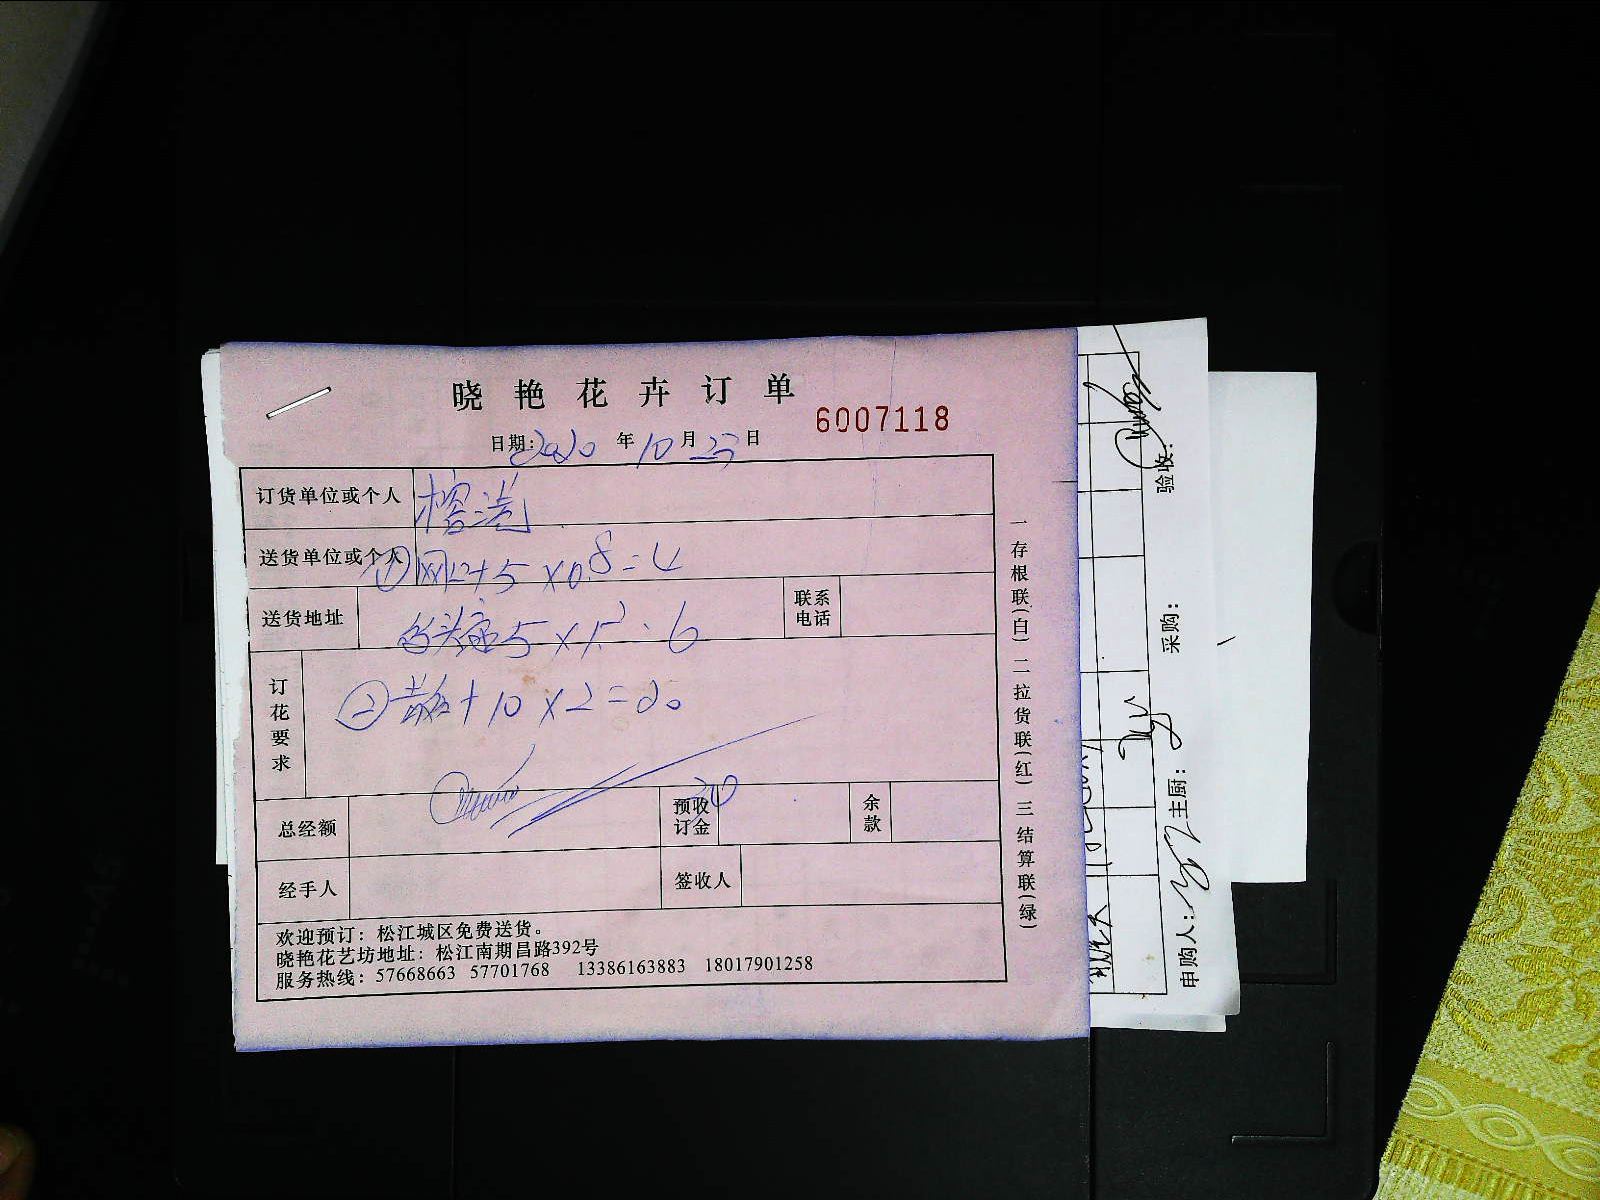 晓艳花卉订单
6007118
日期: 2020 年 10 月 23 日
订货单位或个人 榕港
送货单位或个人
① 5 × 0.8 = 4
送货地址
5 × 1.2 = 6
联系电话
订花要求
② + 10 × 2 = 20
总经额
预收订金 30
余款
经手人
签收人
欢迎预订：松江城区免费送货。
晓艳花艺坊地址：松江南期昌路392号
服务热线：57668663 57701768 13386163883 18017901258
一存根联(白) 二拉货联(红) 三结算联(绿)
验收：
采购：
主厨：
申购人：